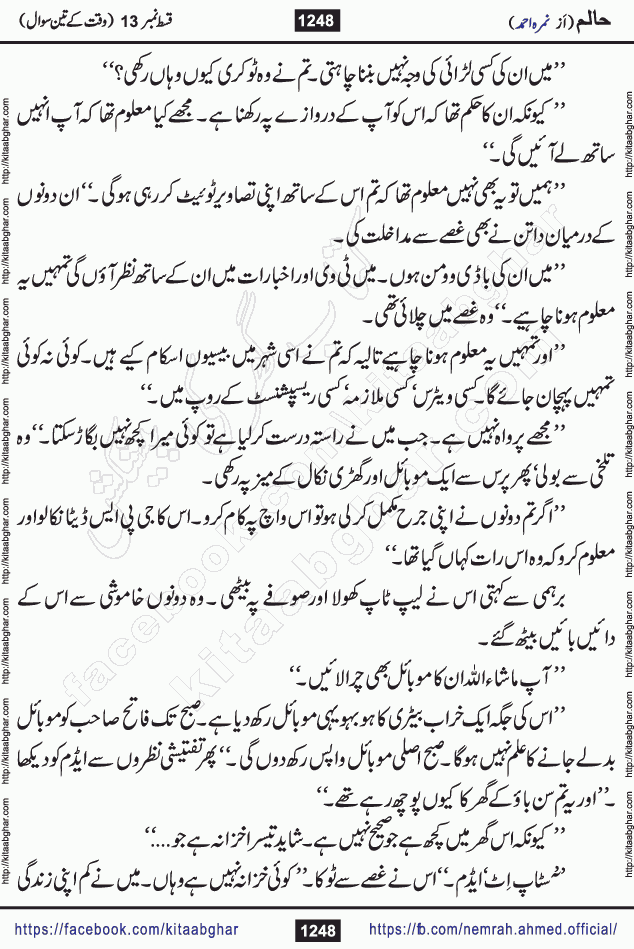 حالم (از نمرہ احمد) 1248 قسط نمبر 13 (وقت کے تین سوال)
’’میں ان کی کسی لڑائی کی وجہ نہیں بننا چاہتی۔ تم نے وہ ٹوکری کیوں وہاں رکھی؟‘‘
’’کیونکہ ان کا حکم تھا کہ اس کو آپ کے دروازے پہ رکھنا ہے۔ مجھے کیا معلوم تھا کہ آپ انہیں
ساتھ لے آئیں گی۔‘‘
’’ہمیں تو یہ بھی نہیں معلوم تھا کہ تم اس کے ساتھ اپنی تصاویر ٹوئیٹ کر رہی ہو گی۔‘‘ ان دونوں
کے درمیان داتن نے بھی غصے سے مداخلت کی۔
’’میں ان کی باڈی وومن ہوں۔ میں ٹی وی اور اخبارات میں ان کے ساتھ نظر آؤں گی تمہیں یہ
معلوم ہونا چاہیے۔‘‘ وہ غصے میں چلائی تھی۔
’’اور تمہیں یہ معلوم ہونا چاہیے تالیہ کہ تم نے اسی شہر میں بیسیوں اسکام کیے ہیں۔ کوئی نہ کوئی
تمہیں پہچان جائے گا۔ کسی ویٹرس‘ کسی ملازمہ‘ کسی ریسپشنسٹ کے روپ میں۔‘‘
’’مجھے پرواہ نہیں ہے۔ جب میں نے راستہ درست کر لیا ہے تو کوئی میرا کچھ نہیں بگاڑ سکتا۔‘‘ وہ
تلخی سے بولی‘ پھر پرس سے ایک موبائل اور گھڑی نکال کے میز پہ رکھی۔
’’اگر تم دونوں نے اپنی جرح مکمل کر لی ہو تو اس واچ پہ کام کرو۔ اس کا جی پی ایس ڈیٹا نکالو اور
معلوم کرو کہ وہ اس رات کہاں گیا تھا۔‘‘
برہمی سے کہتی اس نے لیپ ٹاپ کھولا اور صوفے پہ بیٹھی۔ وہ دونوں خاموشی سے اس کے
دائیں بائیں بیٹھ گئے۔
’’آپ ماشاءاللہ ان کا موبائل بھی چرا لائیں۔‘‘
’’اس کی جگہ ایک خراب بیٹری کا ہو بہو یہی موبائل رکھ دیا ہے۔ صبح تک فاتح صاحب کو موبائل
بدلے جانے کا علم نہیں ہوگا۔ صبح اصلی موبائل واپس رکھ دوں گی۔‘‘ پھر تفتیشی نظروں سے ایڈم کو دیکھا
۔’’اور یہ تم سن باؤ کے گھر کا کیوں پوچھ رہے تھے۔‘‘
’’کیونکہ اس گھر میں کچھ ہے جو صحیح نہیں ہے۔ شاید تیسرا خزانہ ہے جو....‘‘
’’سٹاپ اِٹ‘ ایڈم۔‘‘ اس نے غصے سے ٹوکا۔ ’’کوئی خزانہ نہیں ہے وہاں۔ میں نے کم اپنی زندگی
https://facebook.com/kitaabghar 1248 https://fb.com/nemrah.ahmed.official/
http://kitaabghar.com
facebook.com/kitaabghar
kitaabghar.com
کتاب گھر کی پیشکش